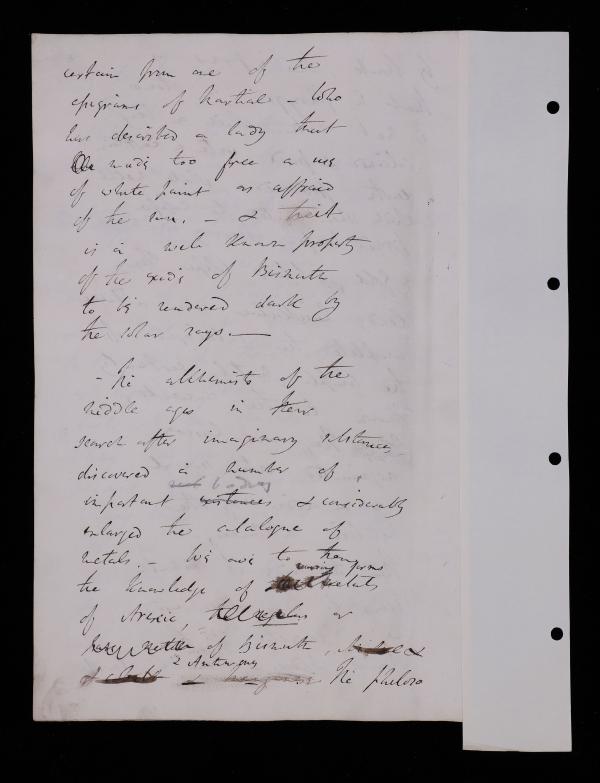 certain from one of the
epigrams of Martial - who
has described a lady that
made too free a use
of white paint as affraid
of the sun. - & that
is a well known property
of the oxide of Bismuth
to be rendered dark by
the solar rays. —
- The alchemists of the
middle ages in their
search after imaginary substances
discovered a number of
bodies
important & considerably
enlarged the catalogue of
metals. - We owe to them
the knowledge of metals
of Arsenic, or
of Bismuth,
& Antimony The philoso